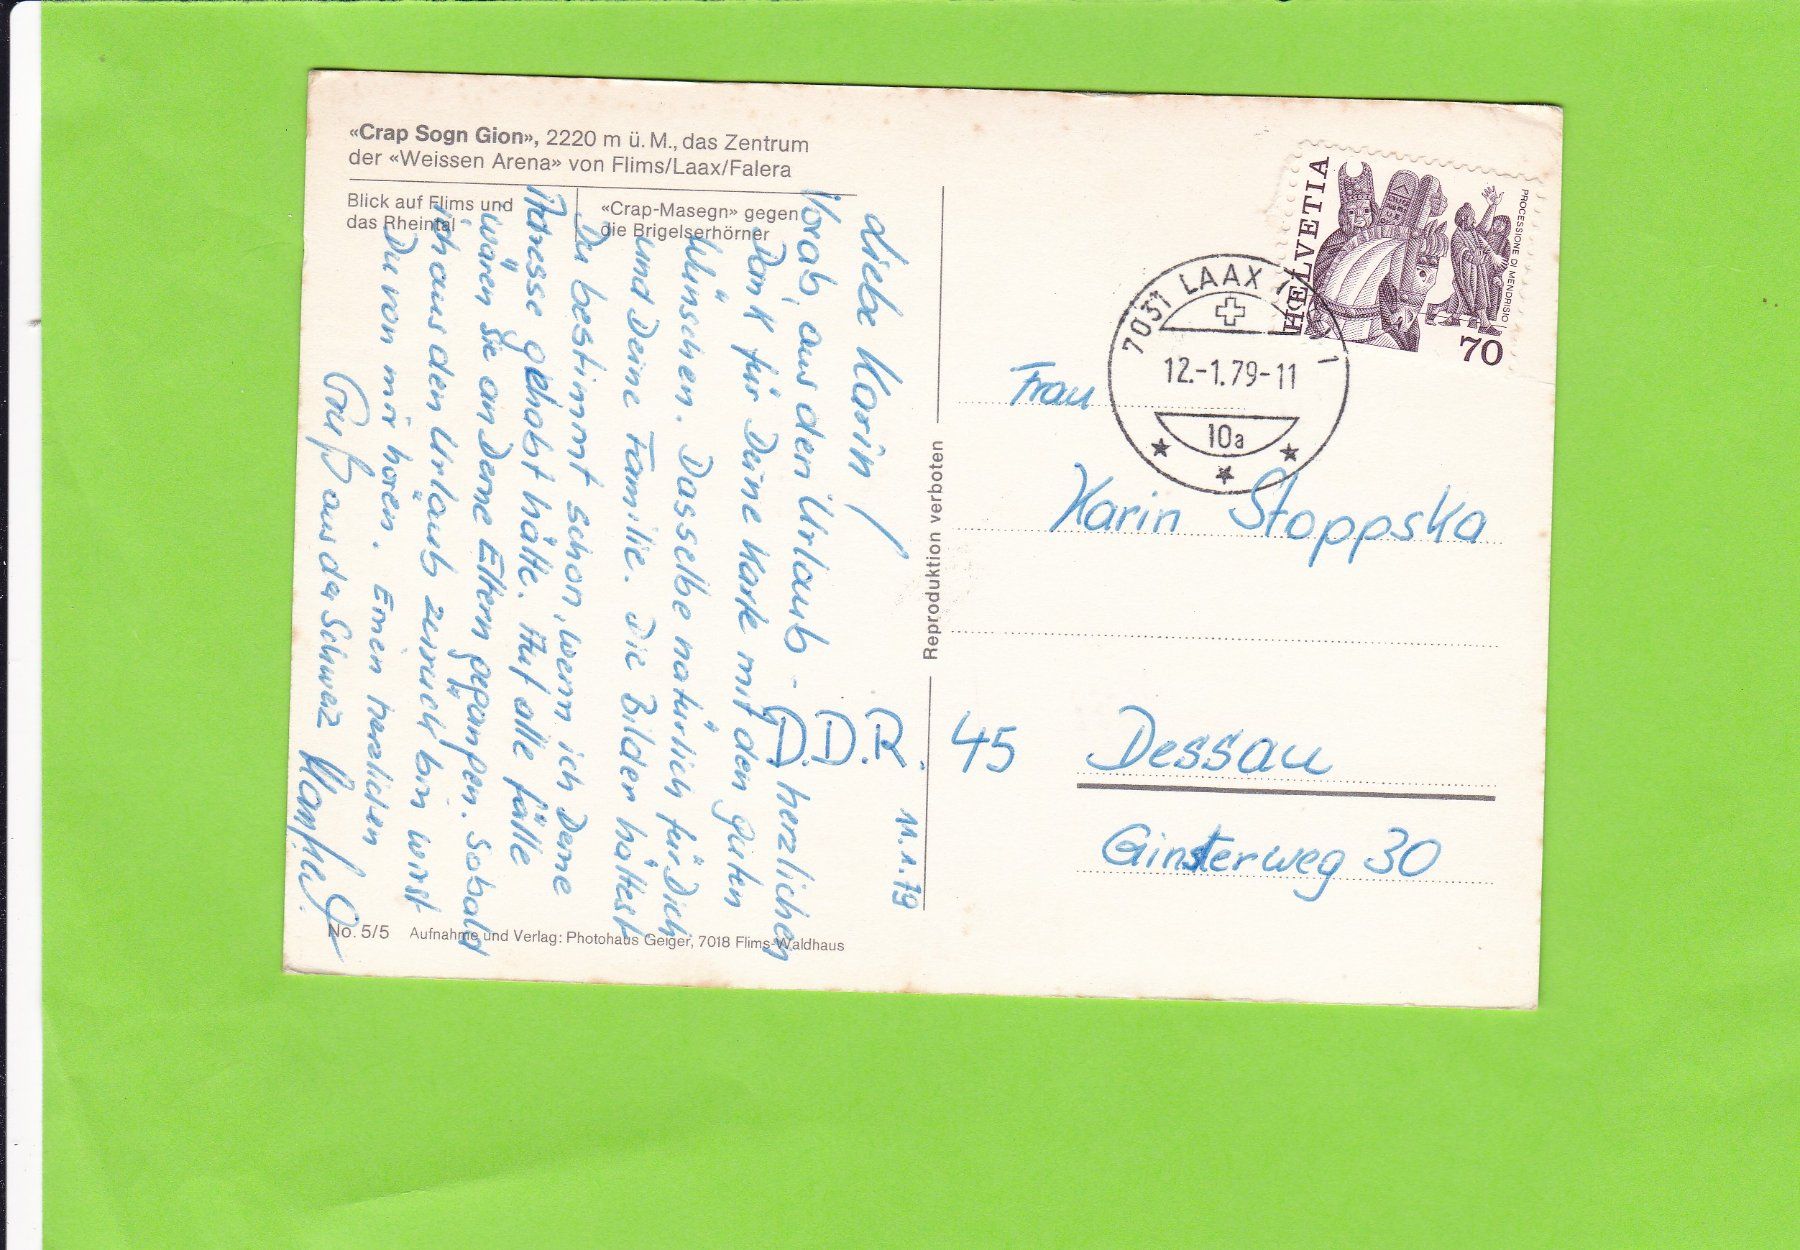 «Crap Sogn Gion», 2220 m ü. M., das Zentrum
der «Weissen Arena» von Flims/Laax/Falera
Blick auf Flims und
das Rheintal
«Crap-Masegn» gegen
die Brigelserhörner
11.1.79
Liebe Karin!
Vorab, aus den Urlaub - herzlichen
Dank für Deine Karte mit den guten
Wünschen. Dasselbe natürlich für Dich
und Deine Familie. Die Bilder hättest
Du bestimmt schon, wenn ich Deine
Adresse gehabt hätte. Auf alle fälle
wären sie an Deine Eltern gegangen. Sobald
ich aus den Urlaub zurück bin wirst
Du von mir hören. Einen herzlichen
Gruß aus der Schweiz
No. 5/5 Aufnahme und Verlag: Photohaus Geiger, 7018 Flims-Waldhaus
Reproduktion verboten
HELVETIA
PROCESSIONE DI MENDRISIO
70
7031 LAAX 1
12.-1.79-11
10a
Frau
Karin Stoppska
D.D.R. 45 Dessau
Ginsterweg 30